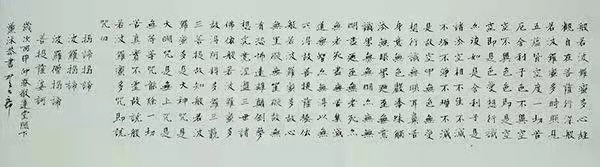 般若波羅蜜多心經
觀自在菩薩行深般
若波羅蜜多時照見
五蘊皆空度一切苦
厄舍利子色不異空
空不異色色即是空
空即是色受想行識
亦復如是舍利子是
諸法空相不生不滅
不垢不淨不增不減
是故空中無色無受
想行識無眼耳鼻舌
身意無色聲香味觸
法無眼界乃至無意
識界無無明亦無無
明盡乃至無老死亦
無老死盡無苦集滅
道無智亦無得以無
所得故菩提薩埵依
般若波羅蜜多故心
無罣礙無罣礙故無
有恐怖遠離顛倒夢
想究竟涅槃三世諸
佛依般若波羅蜜多
故得阿耨多羅三藐
三菩提故知般若波
羅蜜多是大神咒是
大明咒是無上咒是
無等等咒能除一切
苦真實不虛故說般
若波羅蜜多咒即說
咒曰
揭諦揭諦
波羅揭諦
波羅僧揭諦
菩提薩婆訶
歲次丙申
薰沐恭書